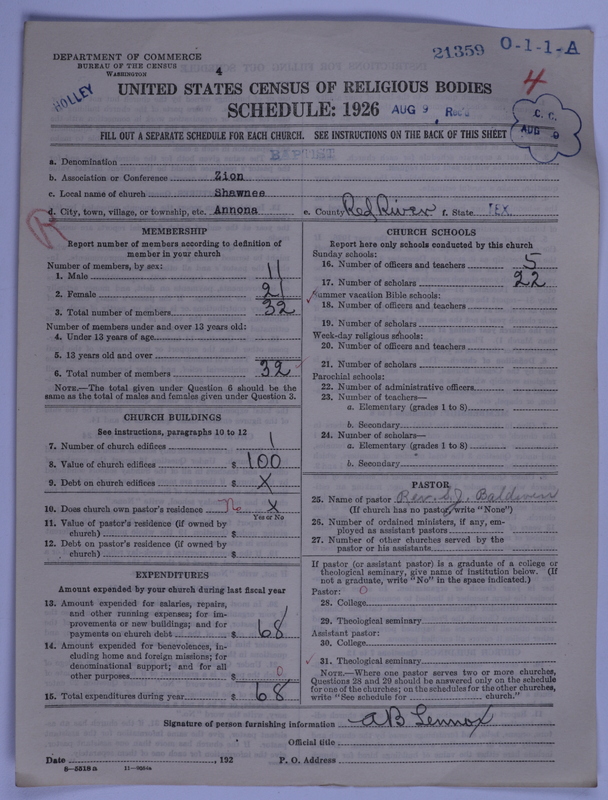 21359 O-1-1-A
DEPARTMENT OF COMMERCE
BUREAU OF THE CENSUS
WASHINGTON
4
HOLLEY
UNITED STATES CENSUS OF RELIGIOUS BODIES
4
SCHEDULE: 1926 AUG 9 Rec'd
C. C.
AUG 9
FILL OUT A SEPARATE SCHEDULE FOR EACH CHURCH. SEE INSTRUCTIONS ON THE BACK OF THIS SHEET
a. Denomination BAPTIST
b. Association or Conference Zion
c. Local name of church Shawnee
d. City, town, village, or township, etc. Annona e. County Red River f. State TEX.
R
MEMBERSHIP
Report number of members according to definition of
member in your church
Number of members, by sex:
1. Male 11
2. Female 21
3. Total number of members 32
Number of members under and over 13 years old:
4. Under 13 years of age
5. 13 years old and over
6. Total number of members 32
NOTE.—The total given under Question 6 should be the
same as the total of males and females given under Question 3.
CHURCH BUILDINGS
See instructions, paragraphs 10 to 12
7. Number of church edifices 1
8. Value of church edifices $ 100
9. Debt on church edifices $ X
10. Does church own pastor's residence X
Yes or No
11. Value of pastor's residence (if owned by
church) $
12. Debt on pastor's residence (if owned by
church) $
EXPENDITURES
Amount expended by your church during last fiscal year
13. Amount expended for salaries, repairs,
and other running expenses; for im-
provements or new buildings; and for
payments on church debt $ 68
14. Amount expended for benevolences, in-
cluding home and foreign missions; for
denominational support; and for all
other purposes $ 0
15. Total expenditures during year $ 68
CHURCH SCHOOLS
Report here only schools conducted by this church
Sunday schools:
16. Number of officers and teachers 5
17. Number of scholars 22
Summer vacation Bible schools:
18. Number of officers and teachers
19. Number of scholars
Week-day religious schools:
20. Number of officers and teachers
21. Number of scholars
Parochial schools:
22. Number of administrative officers
23. Number of teachers—
a. Elementary (grades 1 to 8)
b. Secondary
24. Number of scholars—
a. Elementary (grades 1 to 8)
b. Secondary
PASTOR
25. Name of pastor Rev. S.J. Baldwin
(If church has no pastor, write "None")
26. Number of ordained ministers, if any, em-
ployed as assistant pastors
27. Number of other churches served by the
pastor or his assistants
If pastor (or assistant pastor) is a graduate of a college or
theological seminary, give name of institution below. (If
not a graduate, write "No" in the space indicated.)
Pastor: O
28. College
29. Theological seminary
Assistant pastor:
30. College
31. Theological seminary
NOTE.—Where one pastor serves two or more churches,
Questions 28 and 29 should be answered only on the schedule
for one of the churches; on the schedules for the other churches,
write "See schedule for church."
Signature of person furnishing information A B Lennox
Official title
Date , 192 P. O. Address
8—5518a 11—9384a